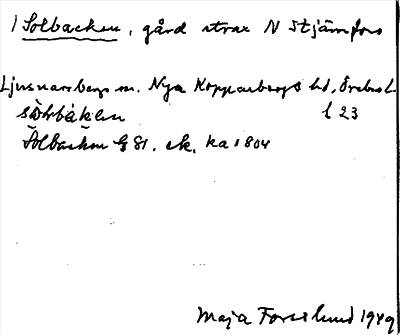 1 Solbacken, gård strax N Stjärnfors
Ljusnarsbergs sn. Nya Kopparbergs hd, Örebro l.
l 23
Solbacken G 81. ek. ka 1804
Maja Forsslund 1949